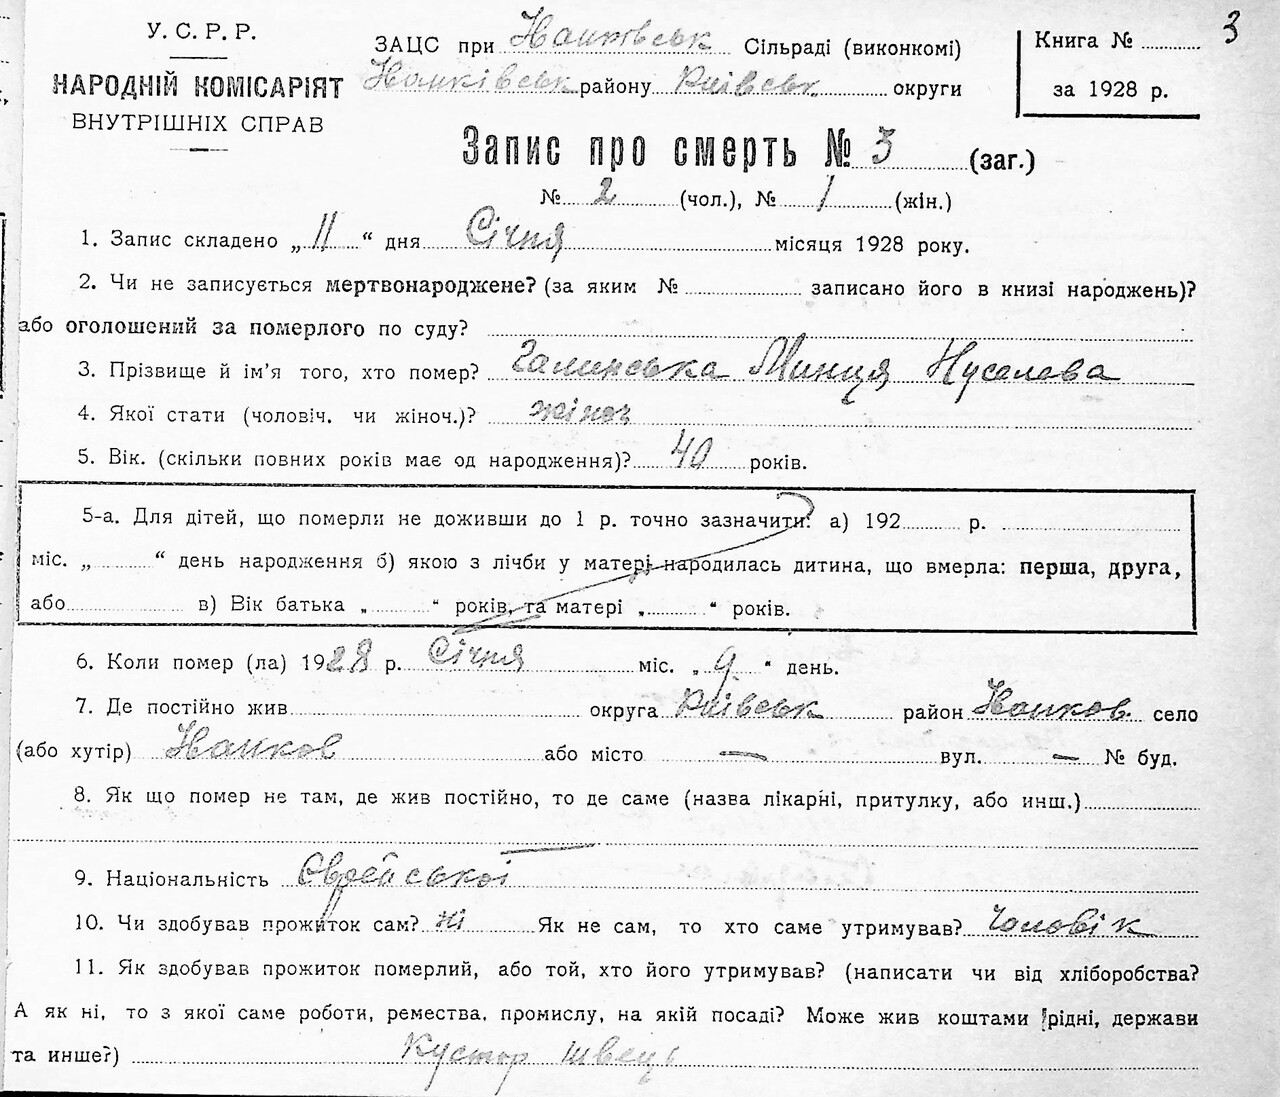 3
У. С. Р. Р.
НАРОДНІЙ КОМІСАРІЯТ
ВНУТРІШНІХ СПРАВ
ЗАЦС при Сільраді (виконкомі)
району Київськ округи
Книга №
за 1928 р.
Запис про смерть № 3 (заг.)
№ 2 (чол.), № 1 (жін.)
1. Запис складено „ 11 “ дня Січня місяця 1928 року.
2. Чи не записується мертвонароджене? (за яким № записано його в книзі народжень)?
або оголошений за померлого по суду?
3. Прізвище й ім'я того, хто помер? Галинська Минця Нуселева
4. Якої стати (чоловіч. чи жіноч.)? жіноч
5. Вік. (скільки повних років має од народження)? 40 років.
5-а. Для дітей, що померли не доживши до 1 р. точно зазначити: а) 192 р.
міс. „ “ день народження б) якою з лічби у матері народилась дитина, що вмерла: перша, друга,
або в) Вік батька „ “ років, та матері „ “ років.
6. Коли помер (ла) 1928 р. Січня міс. „ 9 “ день.
7. Де постійно жив округа Київськ район село
(або хутір) або місто — вул. — № буд.
8. Як що помер не там, де жив постійно, то де саме (назва лікарні, притулку, або инш.)
9. Національність Єврейської
10. Чи здобував прожиток сам? ні Як не сам, то хто саме утримував? Чоловік
11. Як здобував прожиток померлий, або той, хто його утримував? (написати чи від хліборобства?
А як ні, то з якої саме роботи, ремества, промислу, на якій посаді? Може жив коштами рідні, держави
та инше?) Кустор швець